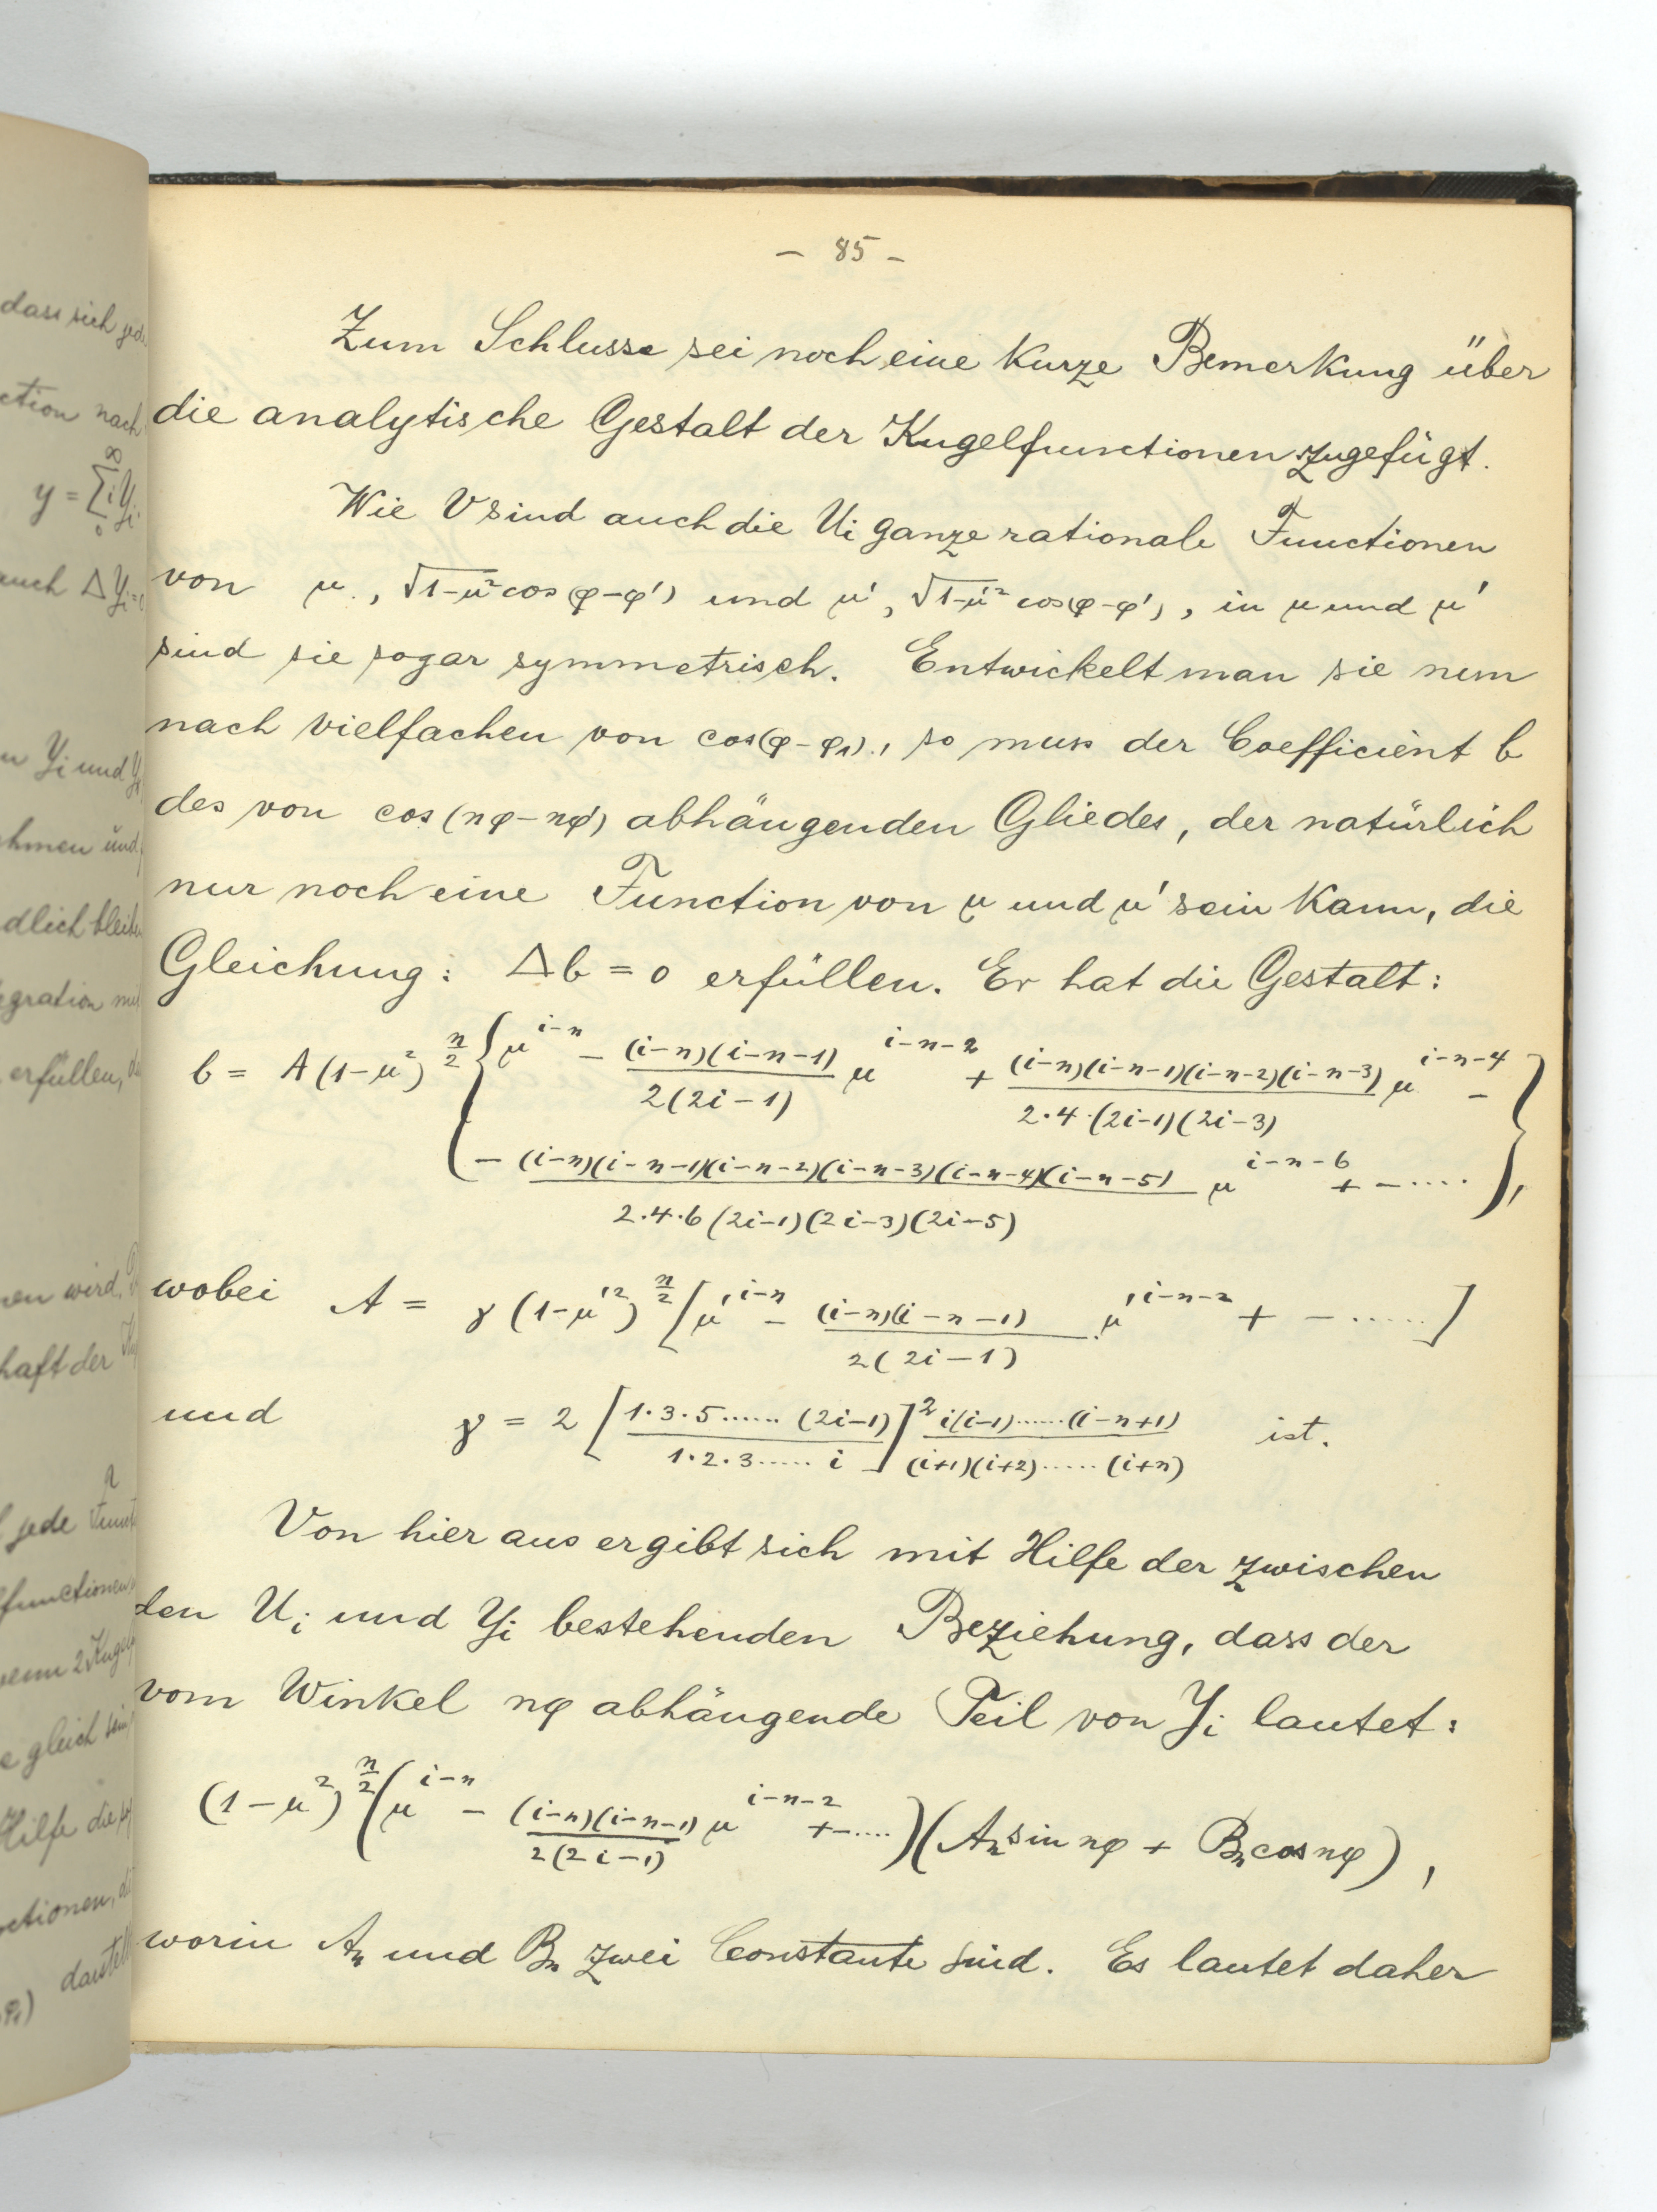 dass sich jed
ction nach
y = ∑ i Yi
∞
0
auch Δ Yi = 0
n Yi und Y
ehmen und
dlich bleibe
egration mit
erfüllen, d
nen wird,
haft der
jede Funct
lfunctionen
wenn 2 Kugel
e gleich sein
Hilfe die
ctionen, di
φ₁) darstell
– 85 –
Zum Schlusse sei noch eine kurze Bemerkung über
die analytische Gestalt der Kugelfunctionen zugefügt.
Wie V sind auch die Ui ganze rationale Functionen
von μ, √1-μ² cos(φ-φ') und μ', √1-μ'² cos(φ-φ'), in μ und μ'
sind sie sogar symmetrisch. Entwickelt man sie nun
nach vielfachen von cos(φ-φ₁), so muss der Coefficient b
des von cos(nφ-nφ') abhängenden Gliedes, der natürlich
nur noch eine Function von μ und μ' sein kann, die
Gleichung: Δb = 0 erfüllen. Er hat die Gestalt:
b = A(1-μ²)^(n/2) { μ^(i-n) - (i-n)(i-n-1)/2(2i-1) μ^(i-n-2) + (i-n)(i-n-1)(i-n-2)(i-n-3)/2·4·(2i-1)(2i-3) μ^(i-n-4) -
- (i-n)(i-n-1)(i-n-2)(i-n-3)(i-n-4)(i-n-5)/2·4·6(2i-1)(2i-3)(2i-5) μ^(i-n-6) + - ···· },
wobei A = γ(1-μ'²)^(n/2) [ μ'^(i-n) - (i-n)(i-n-1)/2(2i-1) μ'^(i-n-2) + - ······ ]
und γ = 2 [ 1·3·5······(2i-1)/1·2·3······i ]² i(i-1)······(i-n+1)/(i+1)(i+2)······(i+n) ist.
Von hier aus ergibt sich mit Hilfe der zwischen
den Ui und Yi bestehenden Beziehung, dass der
vom Winkel nφ abhängende Teil von Yi lautet:
(1-μ²)^(n/2) ( μ^(i-n) - (i-n)(i-n-1)/2(2i-1) μ^(i-n-2) + - ···· )( An sin nφ + Bn cos nφ ),
worin An und Bn zwei Constante sind. Es lautet daher